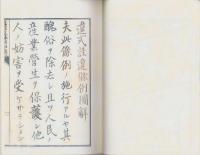 違式詿違條例圖解
夫此條例ノ施行アルヤ其
醜俗ヲ除去シ且ツ人民ノ
産業營生ヲ保護シ他
人ノ妨害ヲ受ケサラシメン